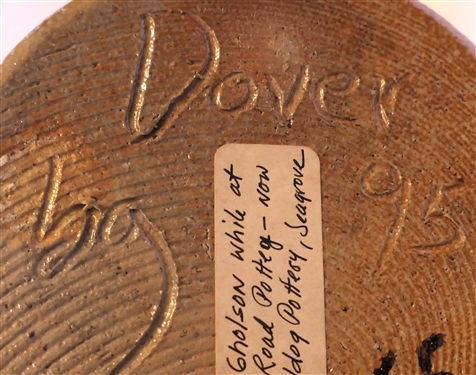 Dover
95
bg
Gholson while at
Road Pottery - now
ldog Pottery, Seagrove